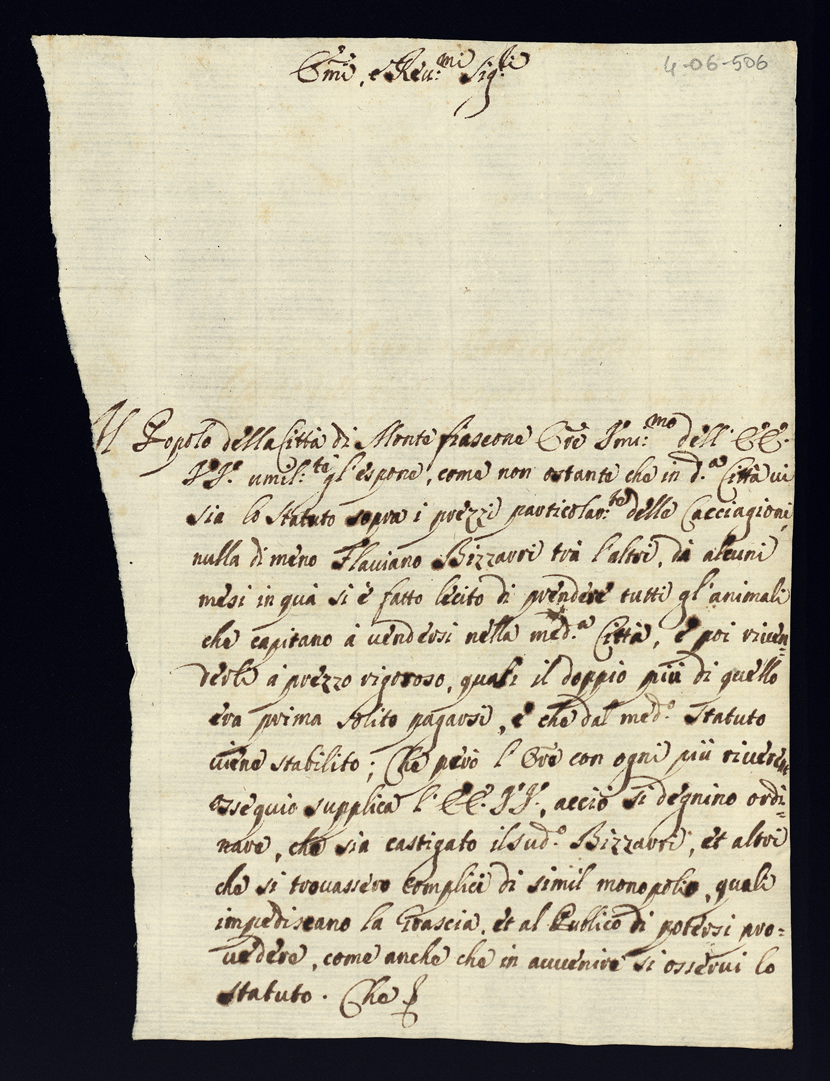 Emi, e Rev:mi Sig:ri
4-06-506
Il Popolo della Città di Monte fiascone Ore Umi:mo dell' EE.
VV. umil:te gl'espone, come non ostante che in d.a Città vi
sia lo statuto sopra i prezzi particolar:te delle Cacciagioni,
nulla di meno Flaviano Bizzarri trà l'altri, dà alcuni
mesi in quà si è fatto lecito di prendere tutti gl'animali
che capitano à vendersi nella med.a Città, e poi riven=
derli à prezzo rigoroso, quasi il doppio più di quello
era prima solito pagarsi, e che dal med.o Statuto
viene stabilito; Che però l'Ore con ogni più riverente
ossequio supplica l'EE. VV., acciò si degnino ordi=
nare, che sia castigato il sud.o Bizzarri, et altri
che si trovassero complici di simil monopolio, quali
impediscano la Grascia, et al Publico di potersi pro=
vedere, come anche che in avvenire si osservi lo
statuto. Che